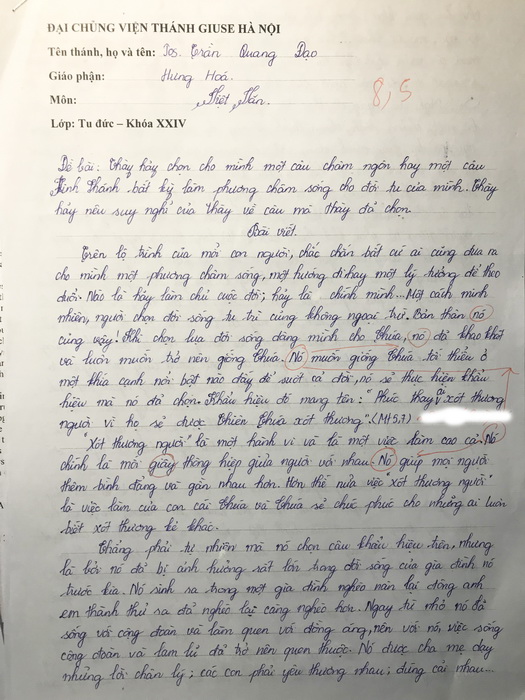 ĐẠI CHỦNG VIỆN THÁNH GIUSE HÀ NỘI
Tên thánh, họ và tên: Jos. Trần Quang Đạo
Giáo phận: Hưng Hoá.
Môn: Việt Văn.
8,5
Lớp: Tu đức – Khóa XXIV
Đề bài: Thầy hãy chọn cho mình một câu châm ngôn hay một câu
Kinh Thánh bất kỳ làm phương châm sống cho đời tu của mình. Thầy
hãy nêu suy nghĩ của Thầy về câu mà Thầy đã chọn.
Bài viết.
Trên lộ trình của mỗi con người, chắc chắn bất cứ ai cũng đưa ra
cho mình một phương châm sống, một hướng đi hay một lý tưởng để theo
đuổi. Nào là hãy làm chủ cuộc đời; hãy là chính mình... Một cách minh
nhiên, người chọn đời sống tu trì cũng không ngoại trừ. Bản thân nó
cũng vậy! Khi chọn lựa đời sống dâng mình cho Chúa, nó đã khao khát
và luôn muốn trở nên giống Chúa. Nó muốn giống Chúa tối thiểu ở
một khía cạnh nổi bật nào đấy để suốt cả đời, nó sẽ thực hiện khẩu
hiệu mà nó đã chọn. Khẩu hiệu đó mang tên: "Phúc thay ai xót thương
người vì họ sẽ được Thiên Chúa xót thương". (Mt 5,7)
"Xót thương người" là một hành vi và là một việc làm cao cả. Nó
chính là mối giây thông hiệp giữa người với nhau. Nó giúp mọi người
thêm bình đẳng và gần nhau hơn. Hơn thế nữa việc "xót thương người"
là việc làm của con cái Chúa và Chúa sẽ chúc phúc cho những ai luôn
biết xót thương kẻ khác.
Chẳng phải tự nhiên mà nó chọn câu khẩu hiệu trên, nhưng
là bởi nó đã bị ảnh hưởng sát lớn trong đời sống của gia đình nó
trước kia. Nó sinh ra trong một gia đình nghèo nàn lại đông anh
em thành thử ra đã nghèo lại càng nghèo hơn. Ngay từ nhỏ nó đã
sống với cộng đoàn và làm quen với đồng áng, nên với nó, việc sống
cộng đoàn và làm lụ đã trở nên quen thuộc. Nó được cha mẹ dạy
những lời chân lý; các con phải yêu thương nhau; đừng cãi nhau...